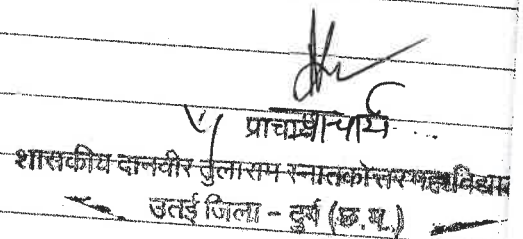 प्राचार्य
शासकीय दानवीर तुलाराम स्नातकोत्तर महाविद्याल
उतई जिला - दुर्ग (छ.ग.)